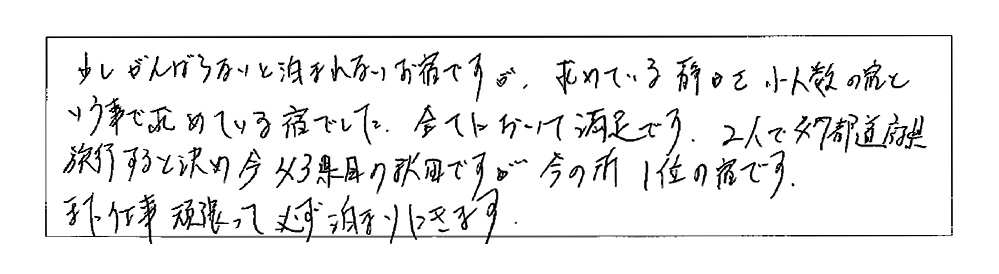 少しがんばらないと泊まれないお宿ですが、求めている静かさ 小人数の宿と
いう事で求めている宿でした。全てにおいて満足です。2人で47都道府県
旅行すると決め今43県目の秋田ですが今の所1位の宿です。
また仕事頑張って必ず泊まりにきます。